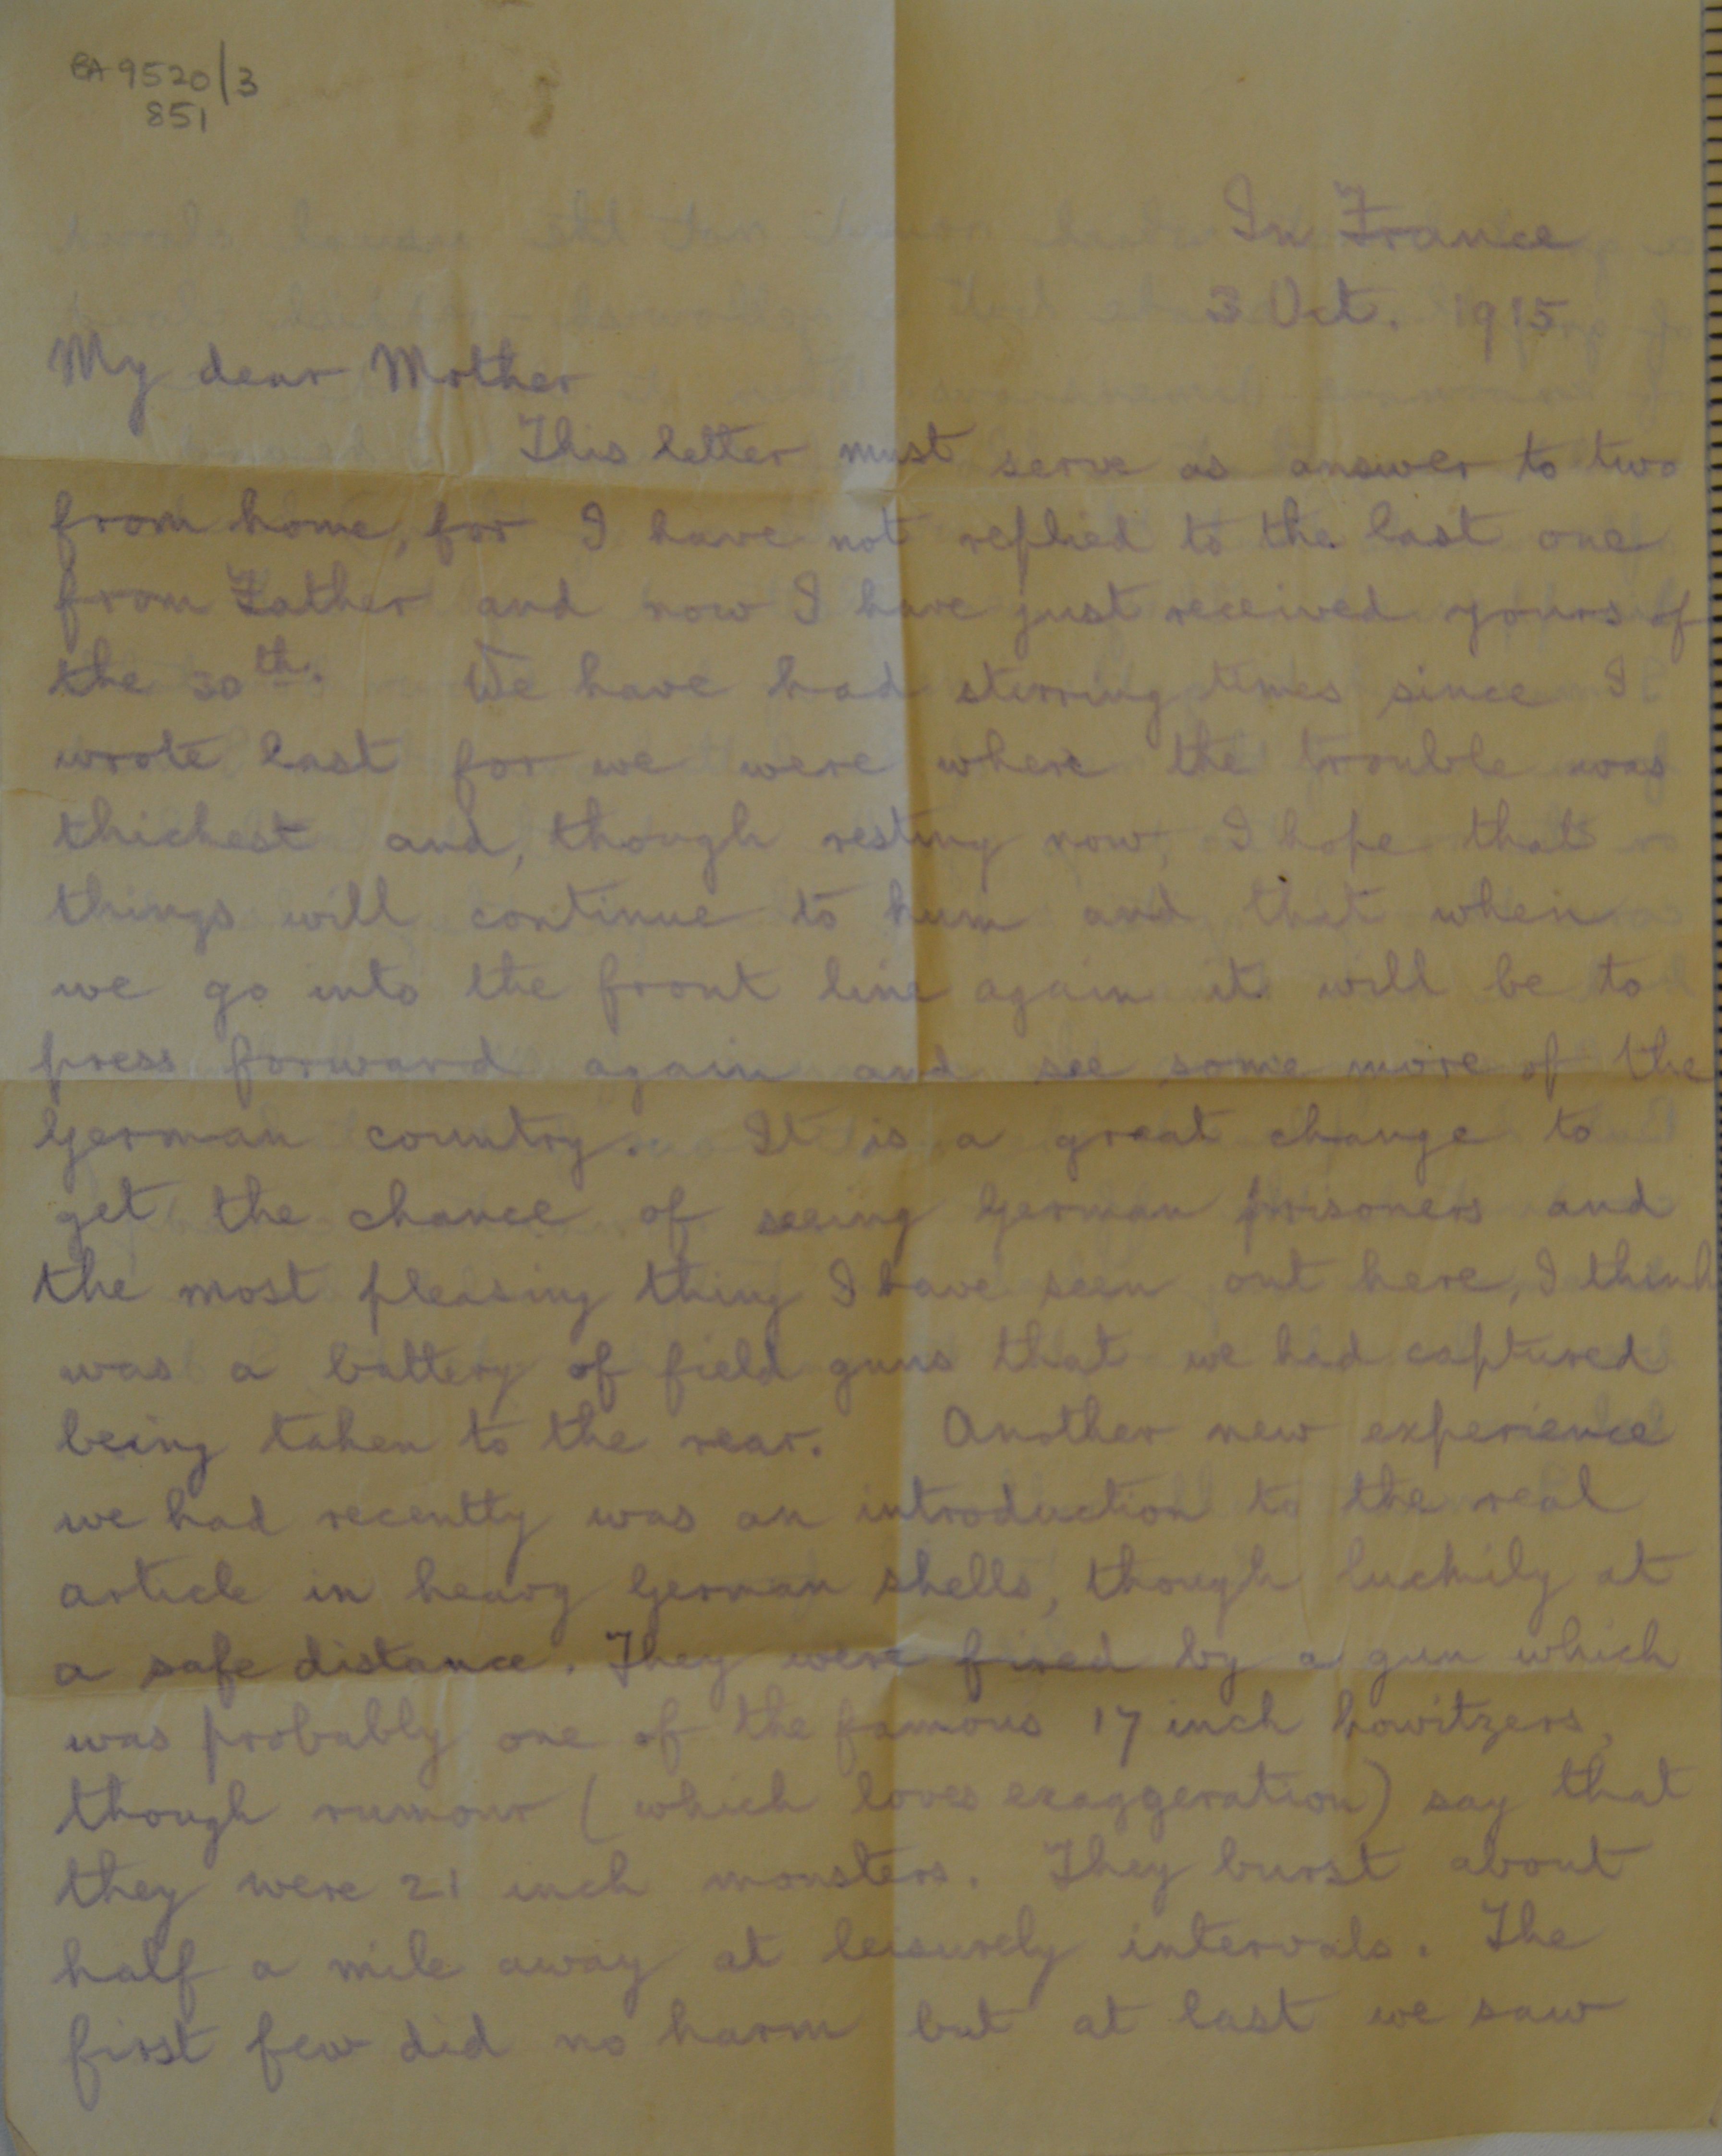 BA 9520/3
851
In France
3 Oct. 1915
My dear Mother
This letter must serve as answer to two
from home, for I have not replied to the last one
from Father and now I have just received yours of
the 30th. We have had stirring times since I
wrote last for we were where the trouble was
thickest and, though resting now, I hope that
things will continue to hum and that when
we go into the front line again it will be to
press forward again and see some more of the
German country. It is a great change to
get the chance of seeing German prisoners and
the most pleasing thing I have seen out here, I think
was a battery of field guns that we had captured
being taken to the rear. Another new experience
we had recently was an introduction to the real
article in heavy German shells, though luckily at
a safe distance. They were fired by a gun which
was probably one of the famous 17 inch howitzers,
though rumour (which loves exaggeration) say that
they were 21 inch monsters. They burst about
half a mile away at leisurely intervals. The
first few did no harm but at last we saw